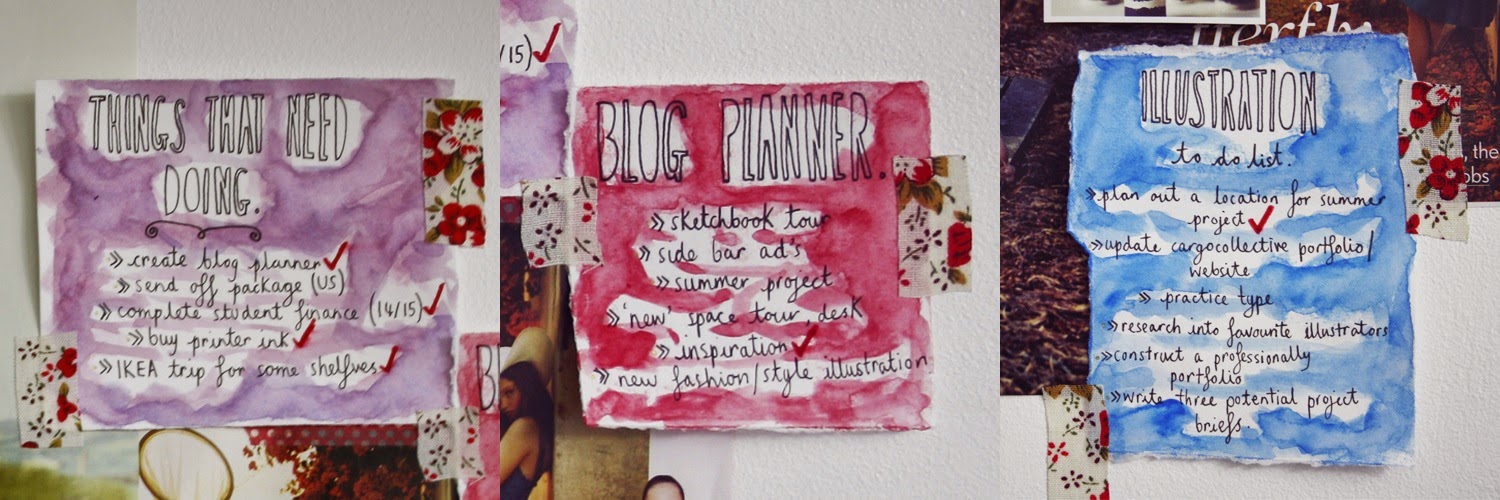 THINGS THAT NEED
DOING.
» create blog planner ✓
» send off package (US)
» complete student finance (14/15) ✓
» buy printer ink ✓
» IKEA trip for some shelves ✓
/15) ✓
BLOG PLANNER.
» sketchbook tour
» side bar ad's
» summer project
» 'new' space tour, desk
» inspiration ✓
» new fashion/style illustration
ILLUSTRATION
to do list.
» plan out a location for summer
project ✓
» update cargocollective portfolio/
website
» practice type
» research into favourite illustrators
» construct a professionally
portfolio
» write three potential project
briefs.
, the